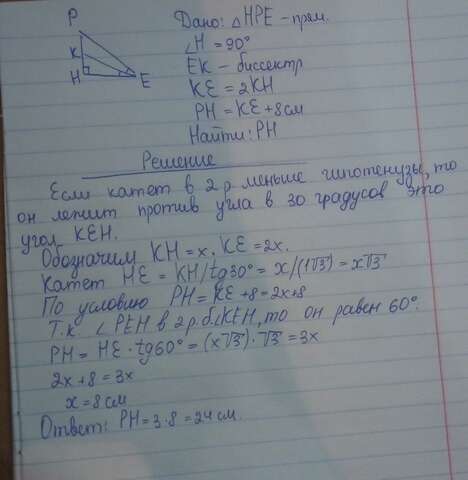 P
K
H
E
Дано: △HPE – прям.
∠H = 90°
EK – биссектр
KE = 2KH
PH = KE + 8 см
Найти: PH
Решение
Если катет в 2 р меньше гипотенузы, то
он лежит против угла в 30 градусов это
угол KEH.
Обозначим KH = x, KE = 2x.
Катет HE = KH/tg30° = x/(1√3) = x√3
По условию PH = KE + 8 = 2x + 8
Т.к ∠PEH в 2 р. б. ∠KEH, то он равен 60°.
PH = HE · tg60° = (x√3) · √3 = 3x
2x + 8 = 3x
x = 8 см
Ответ: PH = 3 · 8 = 24 см.